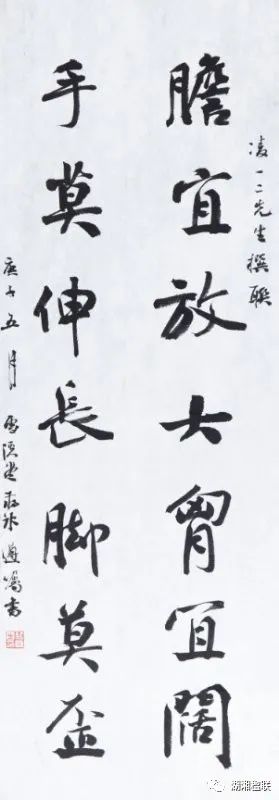 凌一二先生撰联
膽宜放大胷宜阔
手莫伸長脚莫歪
庚子五月
書
湖湘楹联